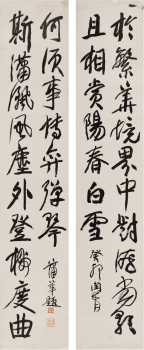 於繁華境界中對酒當歌
且相賞陽春白雪
癸卯閏五月
斯瀟灑風塵外登樓度曲
何須事博弈彈琴
蒲華題